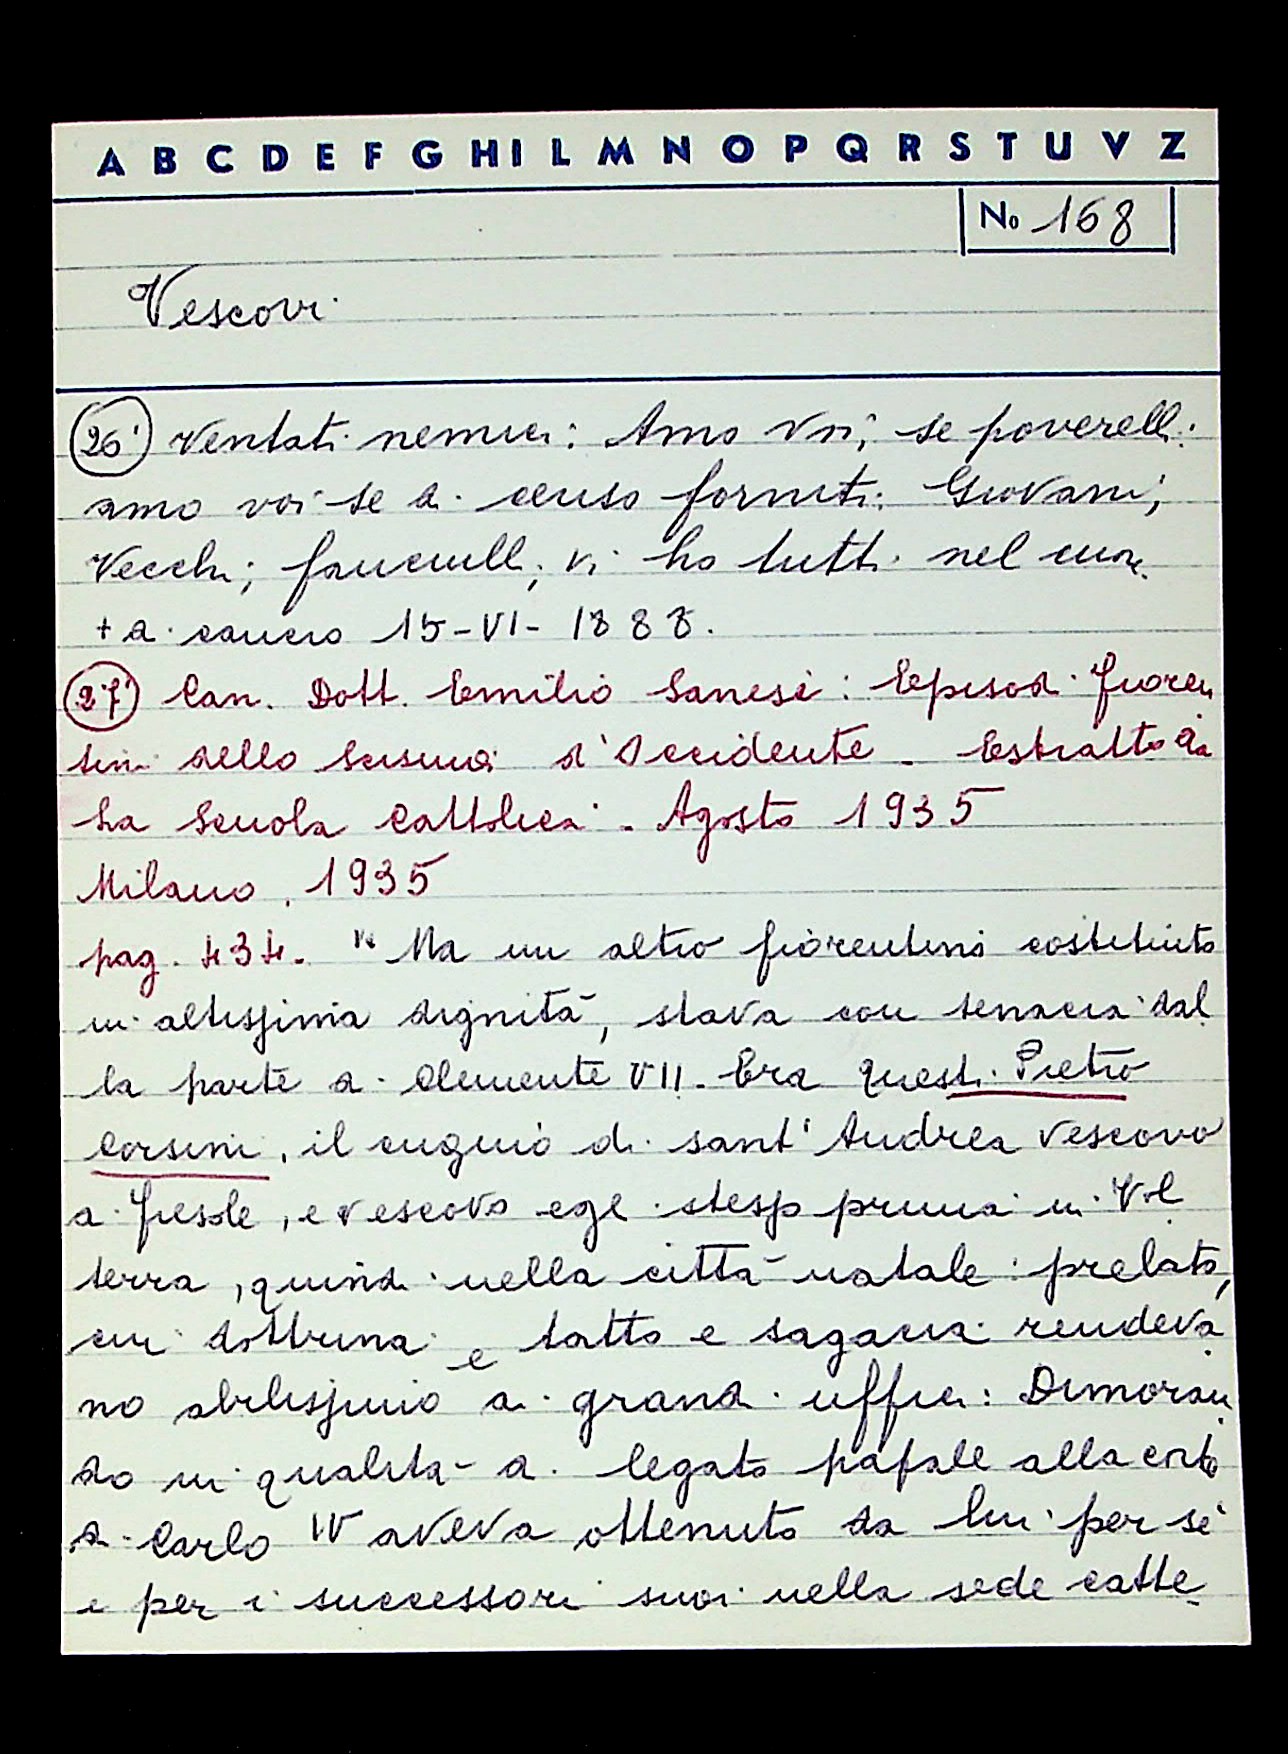 A B C D E F G H I L M N O P Q R S T U V Z
No 168
Vescovi
26) ventati nemici: Amo voi, se poverelli:
amo voi se di censo forniti: Giovani,
Vecchi, fanciulli, vi ho tutti nel cuore.
+ a 15-VI-1888.
27) Can. Dott. Emilio Sanesi: Episodi fioren
tini dello Scisma d'Occidente - Estratto da
La Scuola Cattolica - Agosto 1935
Milano, 1935
pag. 434. "Ma un altro fiorentino costituito
in altissima dignità, stava con tenacia dal
la parte di Clemente VII. Era questi Pietro
Corsini, il cugino di sant'Andrea vescovo
di Fiesole, e vescovo egli stesso prima in Vol
terra, quindi nella città natale: prelato,
cui dottrina e tatto e sagacia rendeva
no abilissimo a grandi uffici: Dimoran
do in qualità di legato papale alla corte
di Carlo IV aveva ottenuto da lui per sé
e per i successori suoi nella sede catte